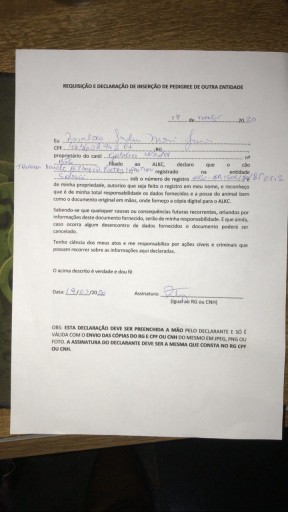 REQUISIÇÃO E DECLARAÇÃO DE INSERÇÃO DE PEDIGREE DE OUTRA ENTIDADE
19 de 2020
Eu
CPF RG
proprietário do canil nº
filiado ao ALKC, declaro que o cão
registrado na entidade
sob o número de registro
de minha propriedade, autorizo que seja feito o registro em meu nome, e reconheço
que é de minha total responsabilidade os dados fornecidos e a posse do animal bem
como o documento original em mãos, onde forneço a cópia digital para o ALKC.
Sabendo-se que quaisquer causas ou consequências futuras recorrentes, oriundas por
informações deste documento fornecido, serão de minha responsabilidade. E que ainda,
caso ocorra algum desencontro de dados fornecidos o documento poderá ser
cancelado.
Tenho ciência dos meus atos e me responsabilizo por ações cíveis e criminais que
possam recorrer sobre as informações aqui declaradas.
O acima descrito é verdade e dou fé
Data: Assinatura:
(igual ao RG ou CNH)
OBS: ESTA DECLARAÇÃO DEVE SER PREENCHIDA A MÃO PELO DECLARANTE E SÓ É
VÁLIDA COM O ENVIO DAS CÓPIAS DO RG E CPF OU CNH DO MESMO EM JPEG, PNG OU
FOTO. A ASSINATURA DO DECLARANTE DEVE SER A MESMA QUE CONSTA NO RG CPF
OU CNH.